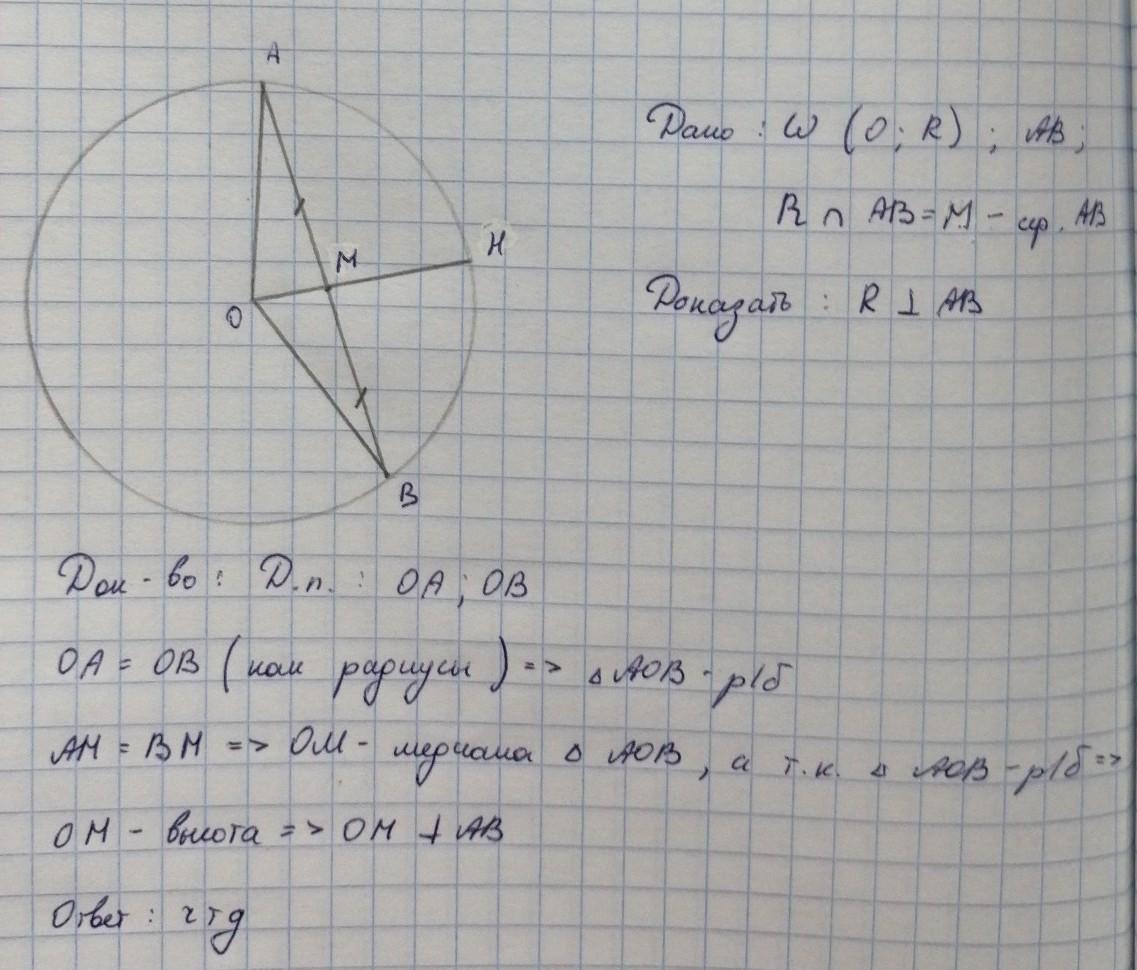 A
H
M
O
B
Дано : ω (O; R) ; AB;
R ∩ AB = M - сер. AB
Доказать : R ⊥ AB
Док-во : Д.п. : OA ; OB
OA = OB (как радиусы) => △ AOB - р/б
AM = BM => OM - медиана △ AOB , а т.к. △ AOB - р/б =>
OM - высота => OM ⊥ AB
Ответ : чтд